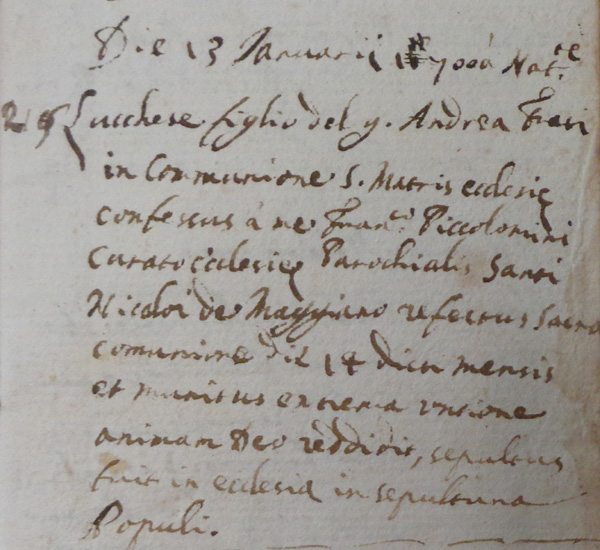 Die 13 Januarii 1700 à Nat.te
Lucchese figlio del q. Andrea Frari
in Communione S. Matris ecclesie
confessus à me Fran.co Piccolomini
Curato ecclesie Parochialis Santi
Nicoloi de Maggiano refectus Sacra
comunione die 14 dicti mensis
et munitus extrema untione
animam Deo reddidit, sepultus
fuit in ecclesia in sepultura
Populi.